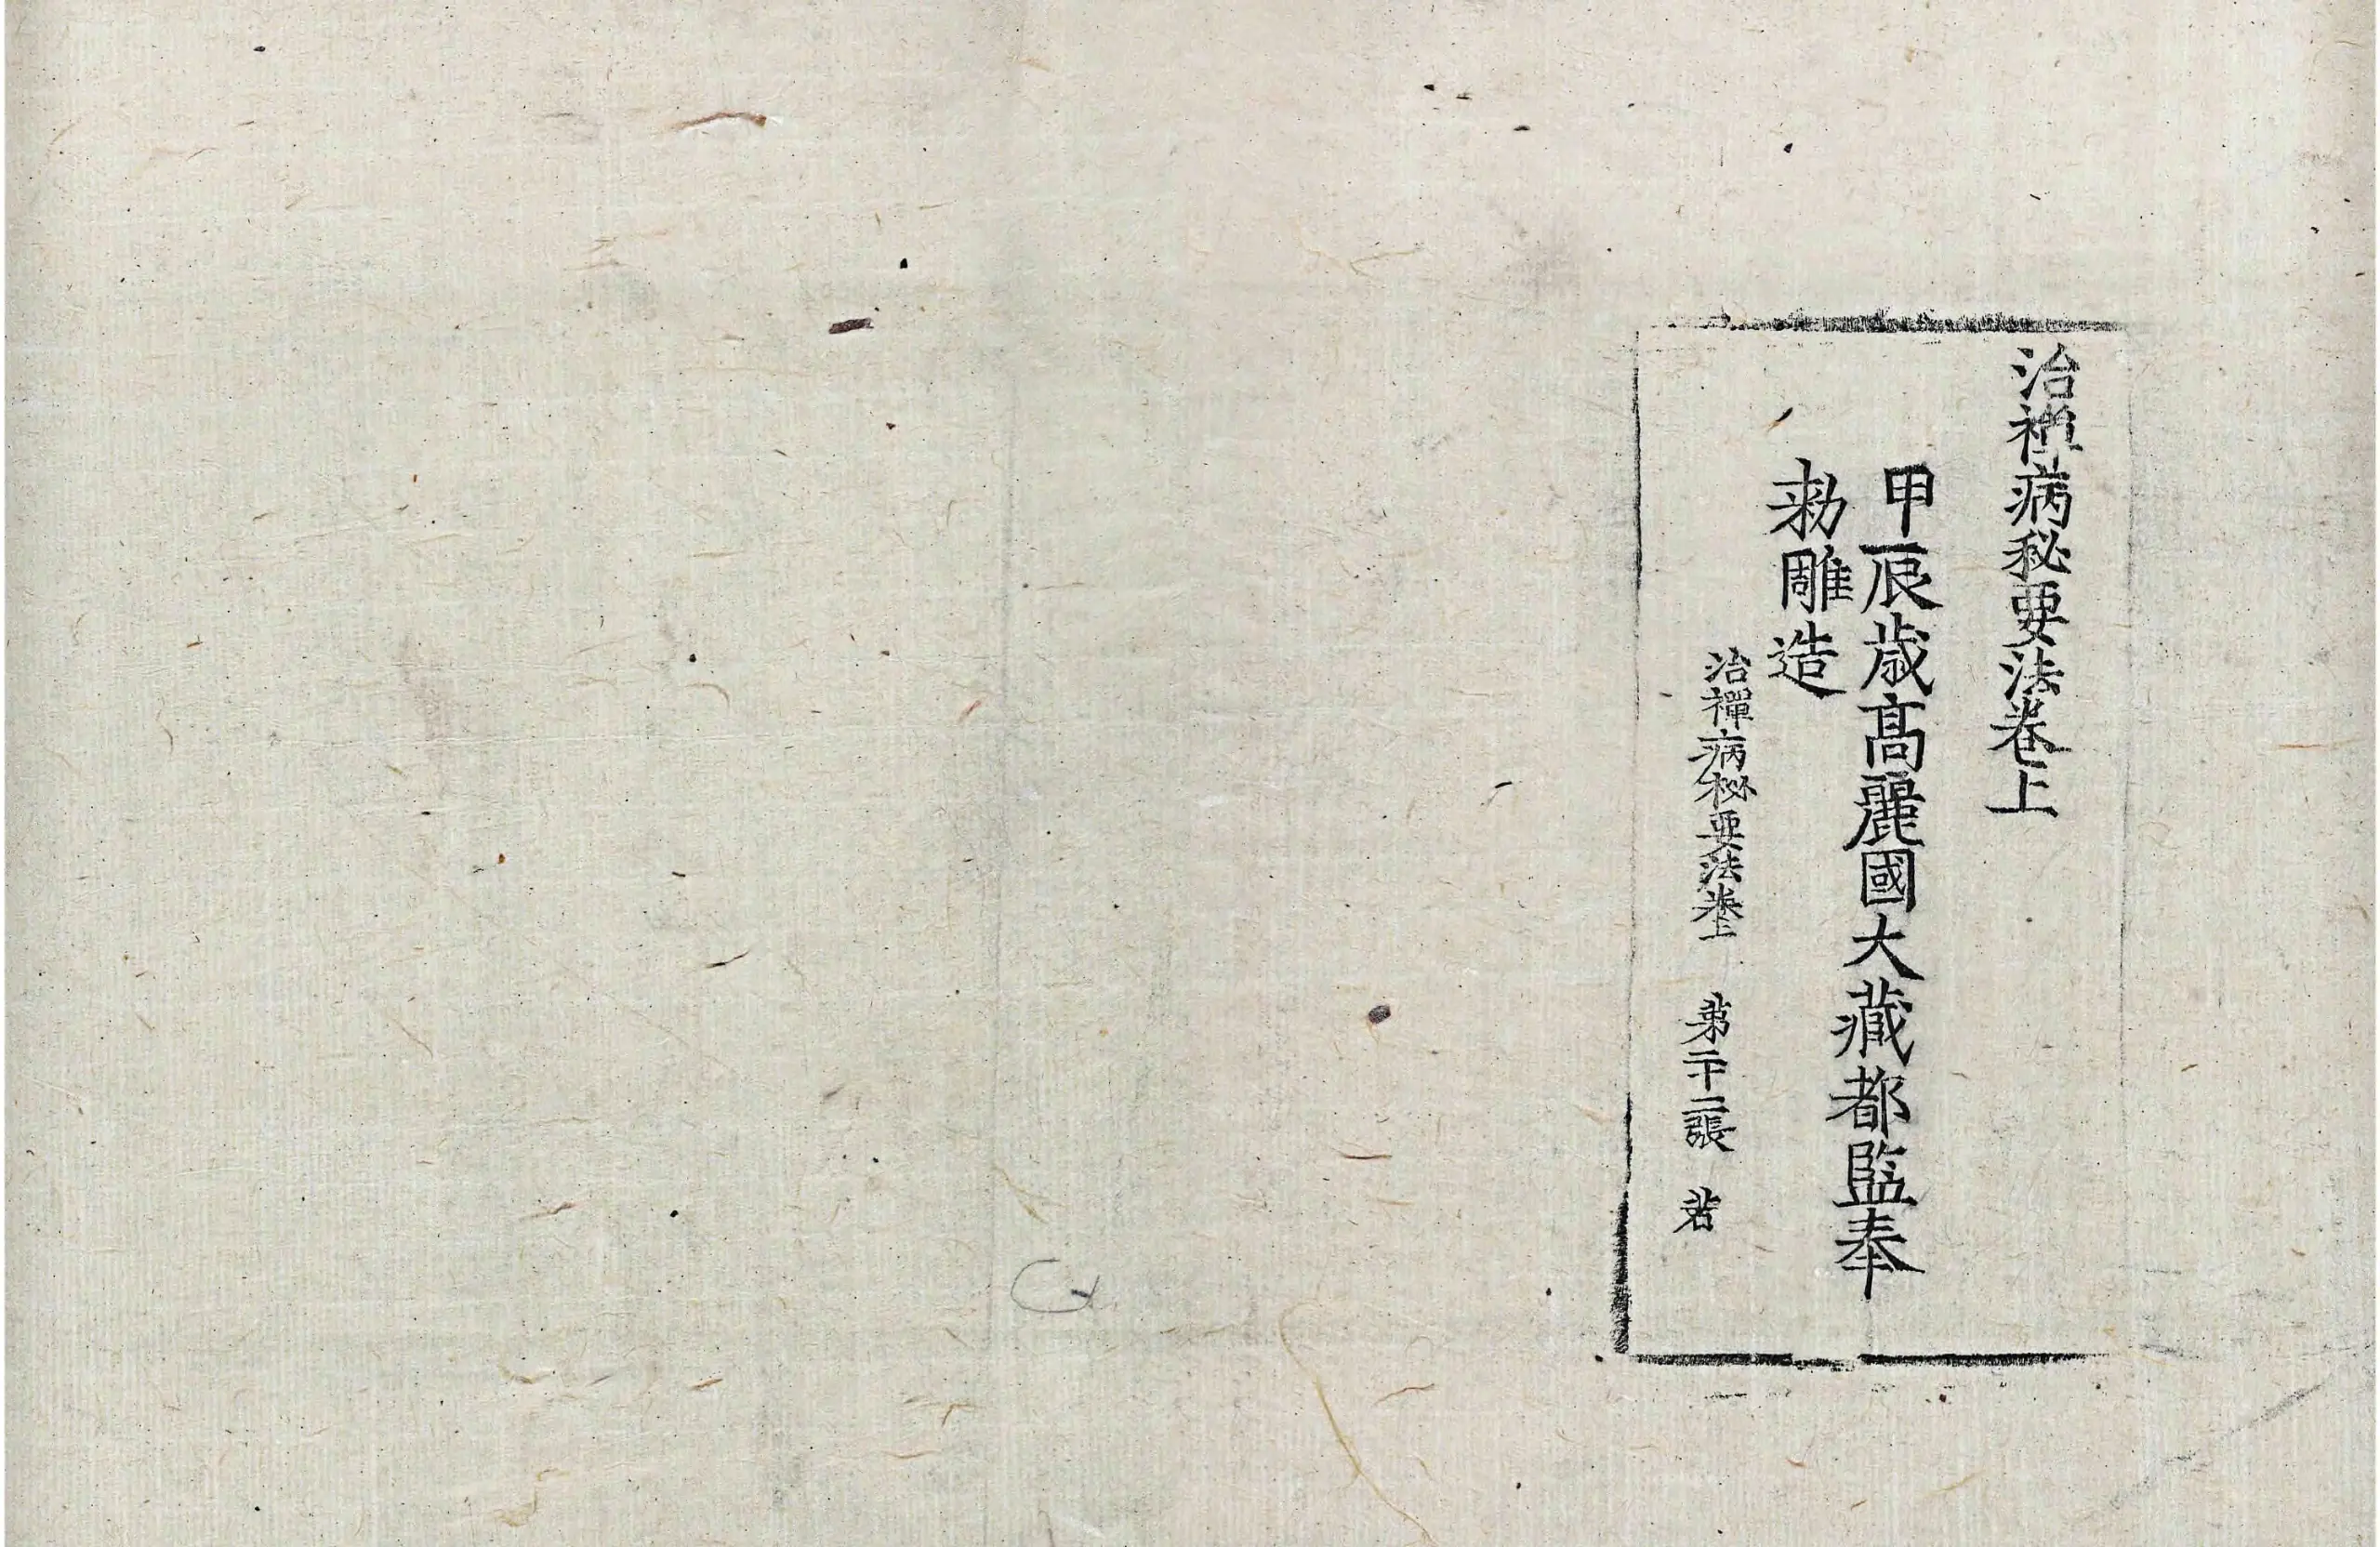 治禪病秘要法卷上
甲辰歳高麗國大藏都監奉
勑雕造
治禪病秘要法卷上 第二十二張 若